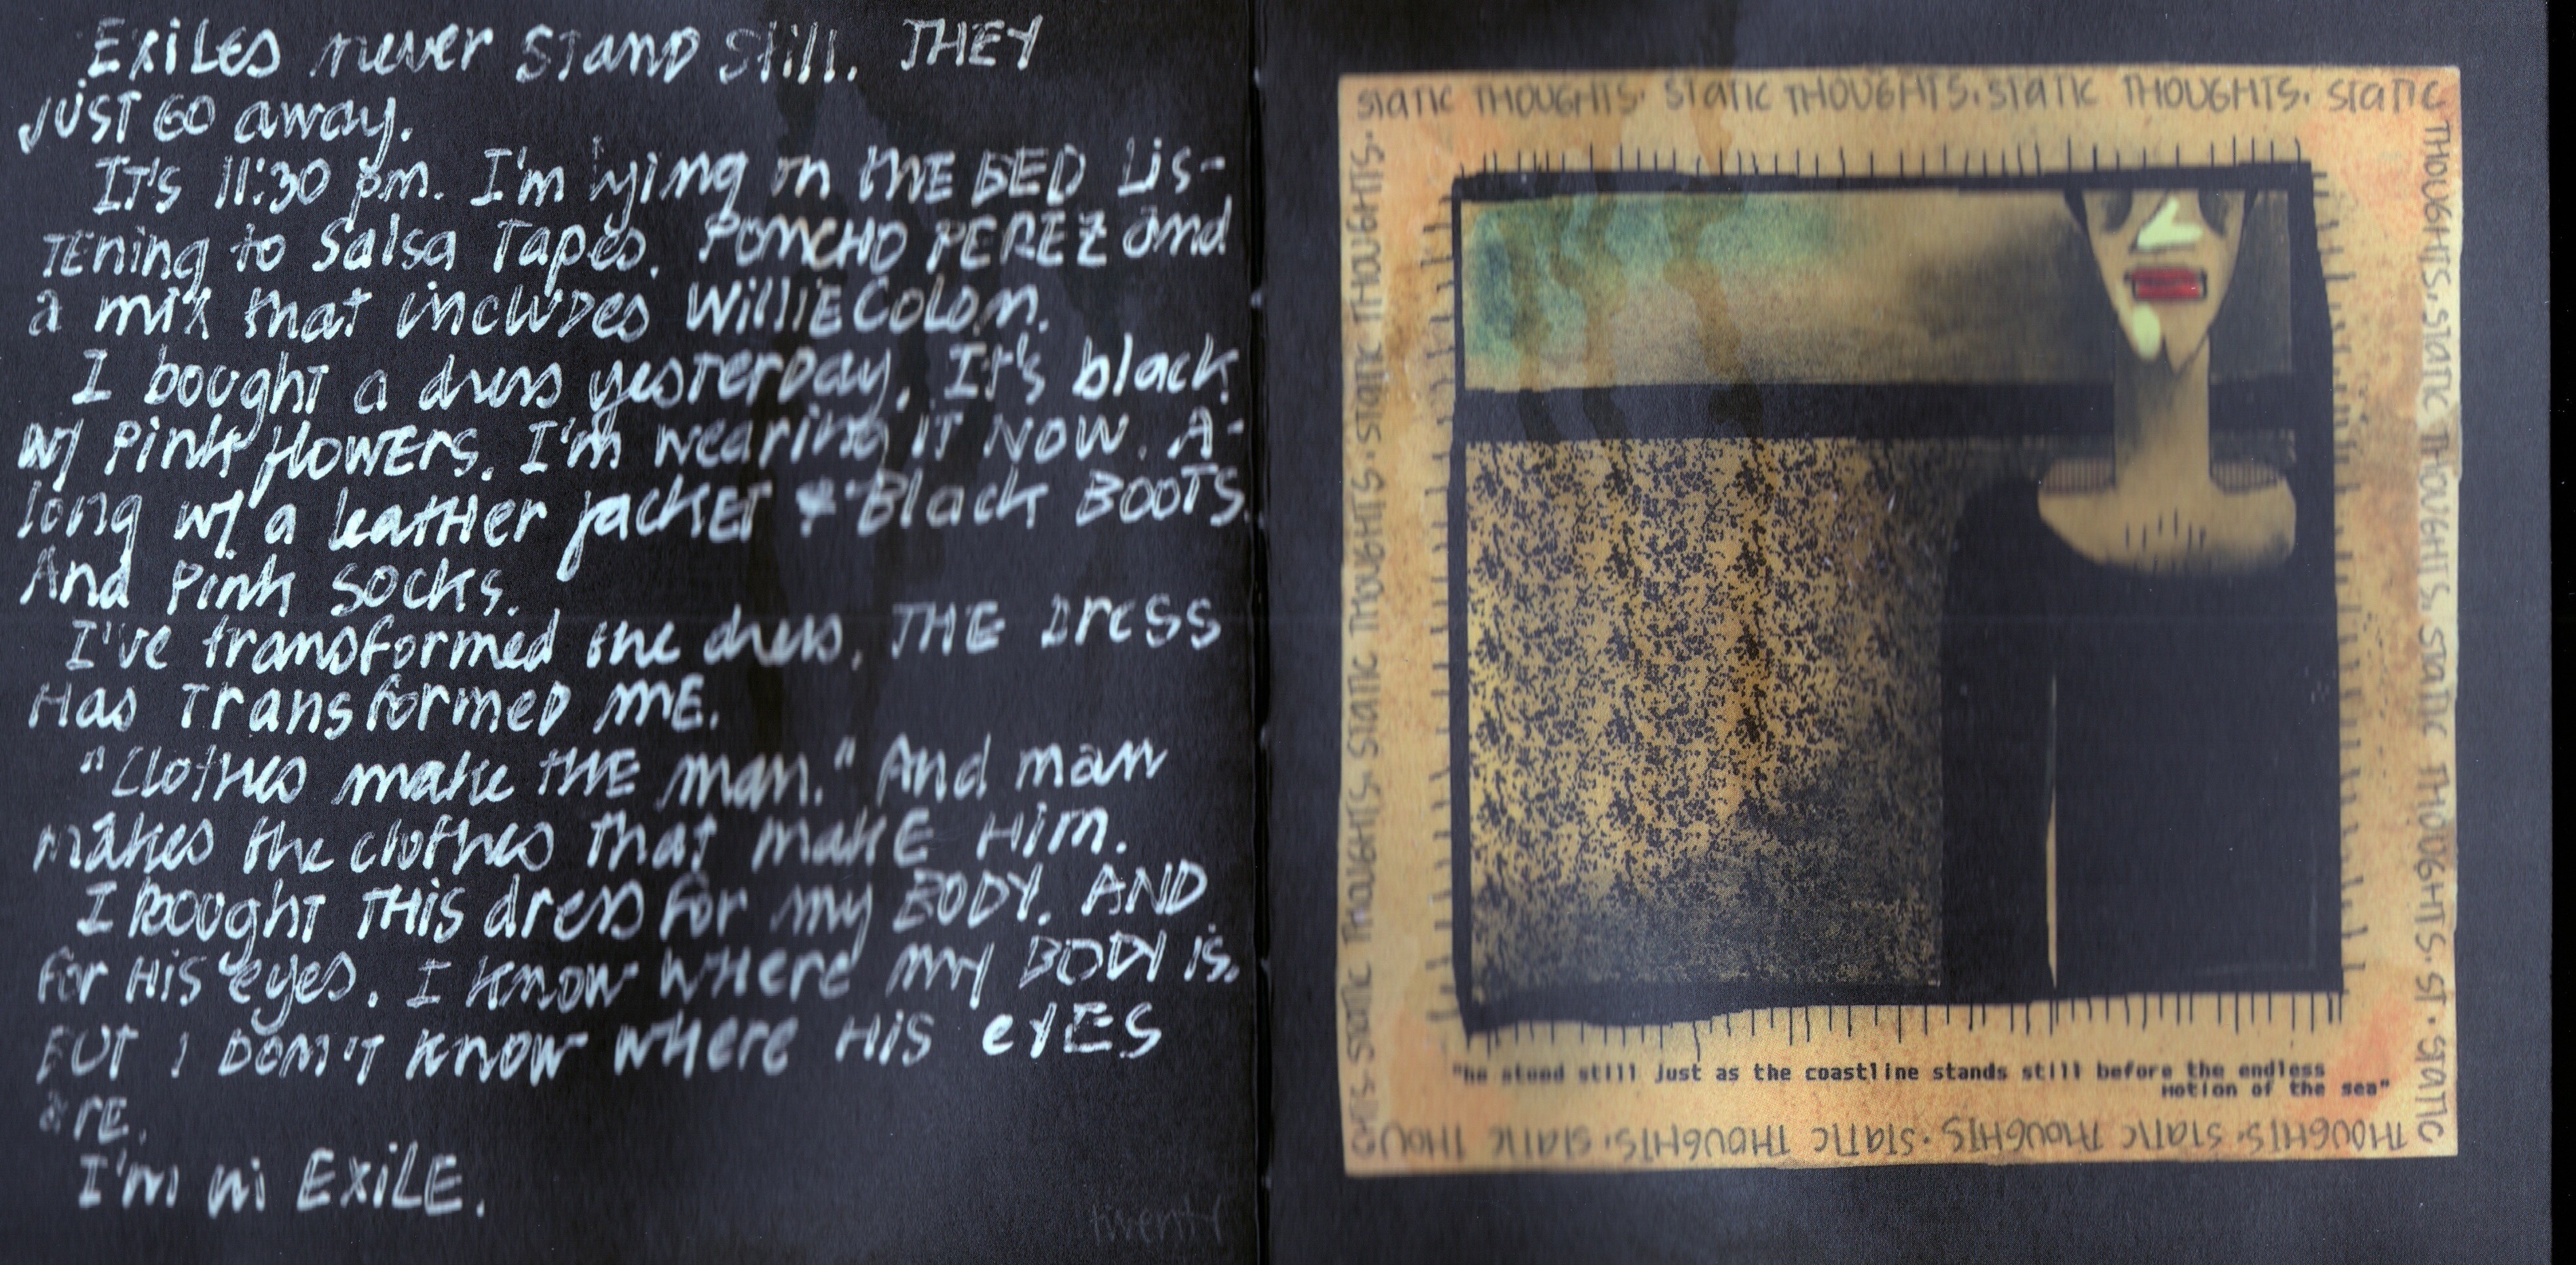 Exiles never stand still. THEY
JUST GO away.
IT's 11:30 pm. I'm lying on the BED Lis-
TEning to Salsa Tapes. PONCHO PEREZ and
a mix that includes WilliE Colon.
I bought a dress yesterday. It's black
w/ pink flowers. I'm wearing IT NOW. A-
long w/ a leather jacket & Black BOOTS.
And pink socks.
I've transformed the dress. THE Dress
Has Transformed ME.
"Clothes make THE man." And man
makes the clothes that make Him.
I bought THIS dress for my BODY. AND
for His eyes. I know where my BODY is.
BUT I DON'T know where His eYES
are.
I'm in EXiLE.
twenty
STATIC THOUGHTS. STATIC THOUGHTS. STATIC THOUGHTS. STATIC
THOUGHTS. STATIC THOUGHTS. STATIC THOUGHTS. ST. STATIC
THOUGHTS. STATIC THOUGHTS. STATIC THOUGHTS. STATIC THOU
GHTS. STATIC THOUGHTS. STATIC THOUGHTS. STATIC THOUGHTS.
"he stood still just as the coastline stands still before the endless
motion of the sea"